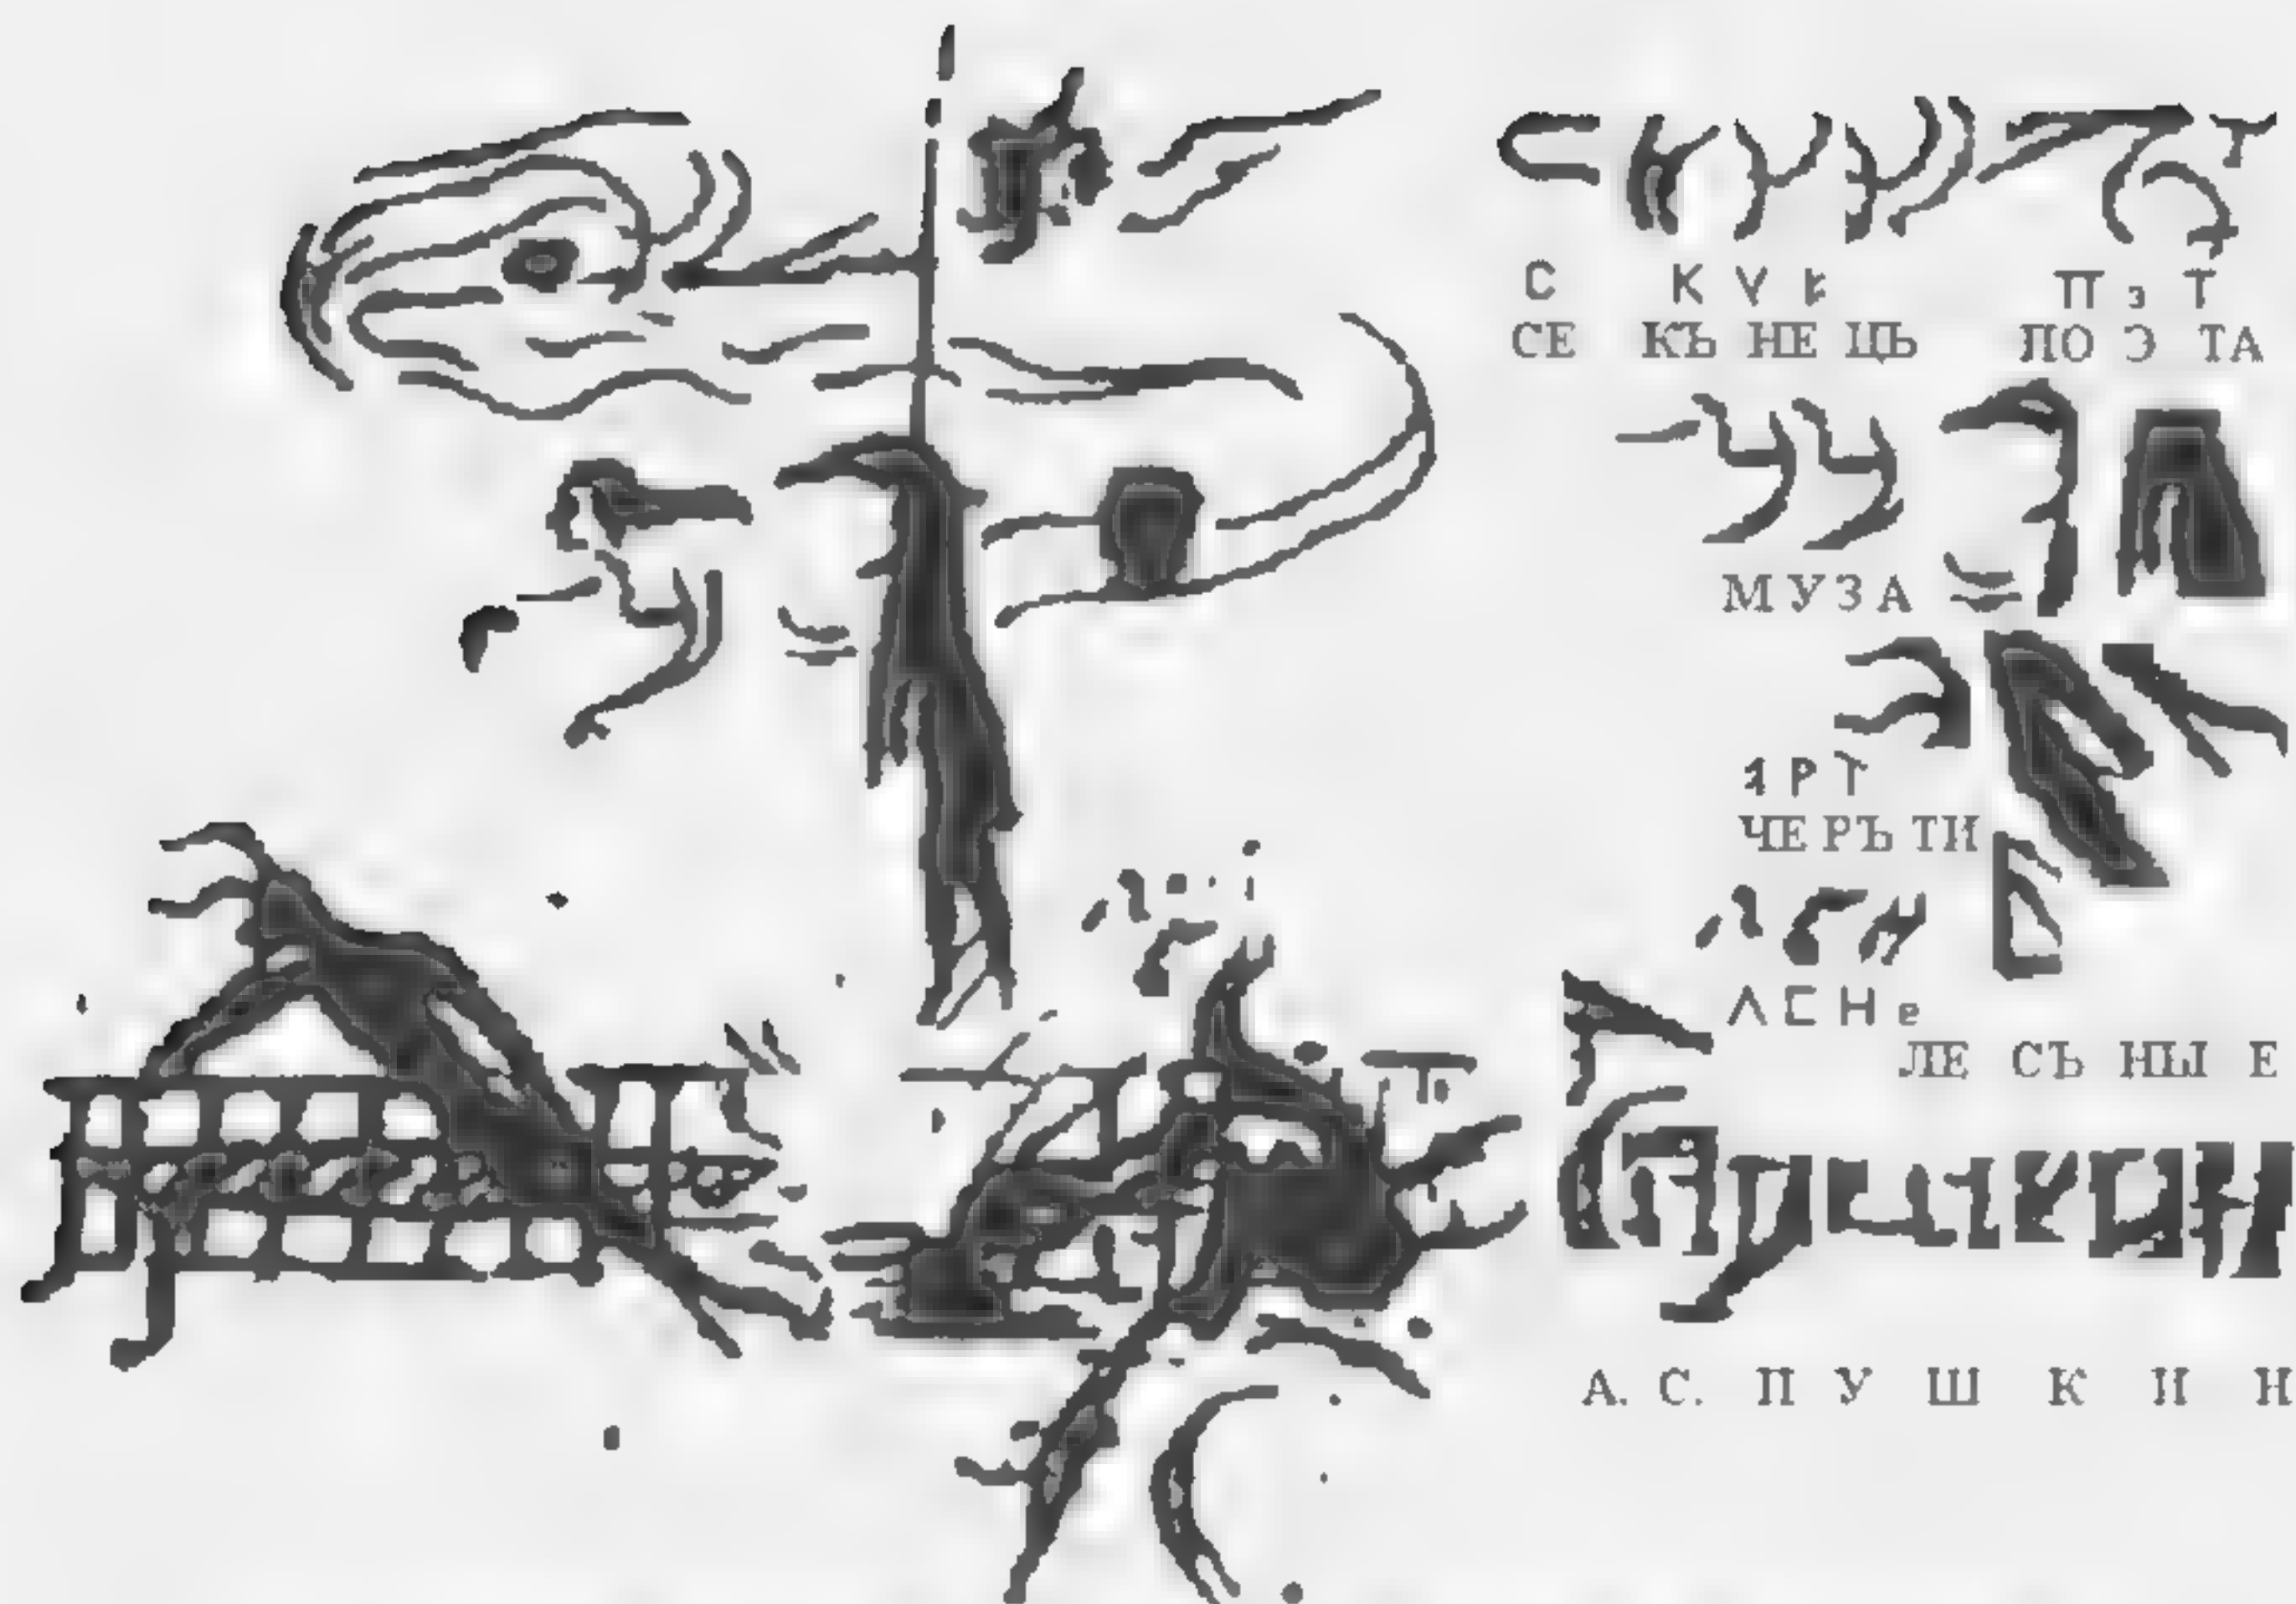 С К У Ь П э Т
СЕ КЪ НЕ ЦЬ ПО Э ТА
МУЗА
Ч Р Т
ЧЕ РЪ ТИ
Λ С Н е
ЛЕ СЪ НЫ Е
А. С. П У Ш К И Н